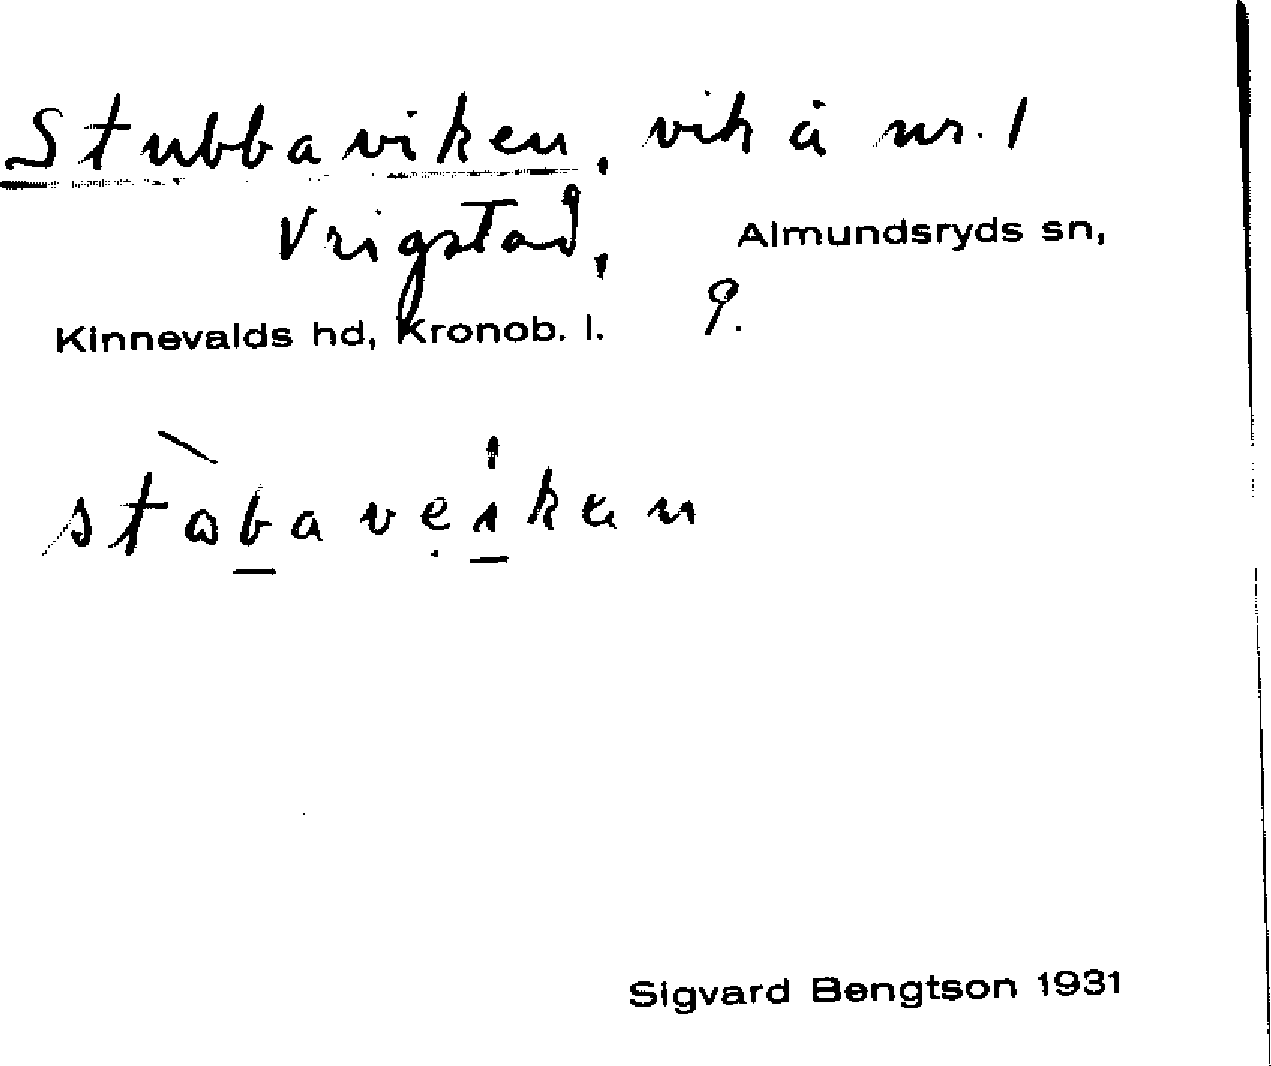 Stubbaviken, vik å nr. 1
Vrigstad, Almundsryds sn,
Kinnevalds hd, Kronob. l. 9.
stωbaveıkan
Sigvard Bengtson 1931